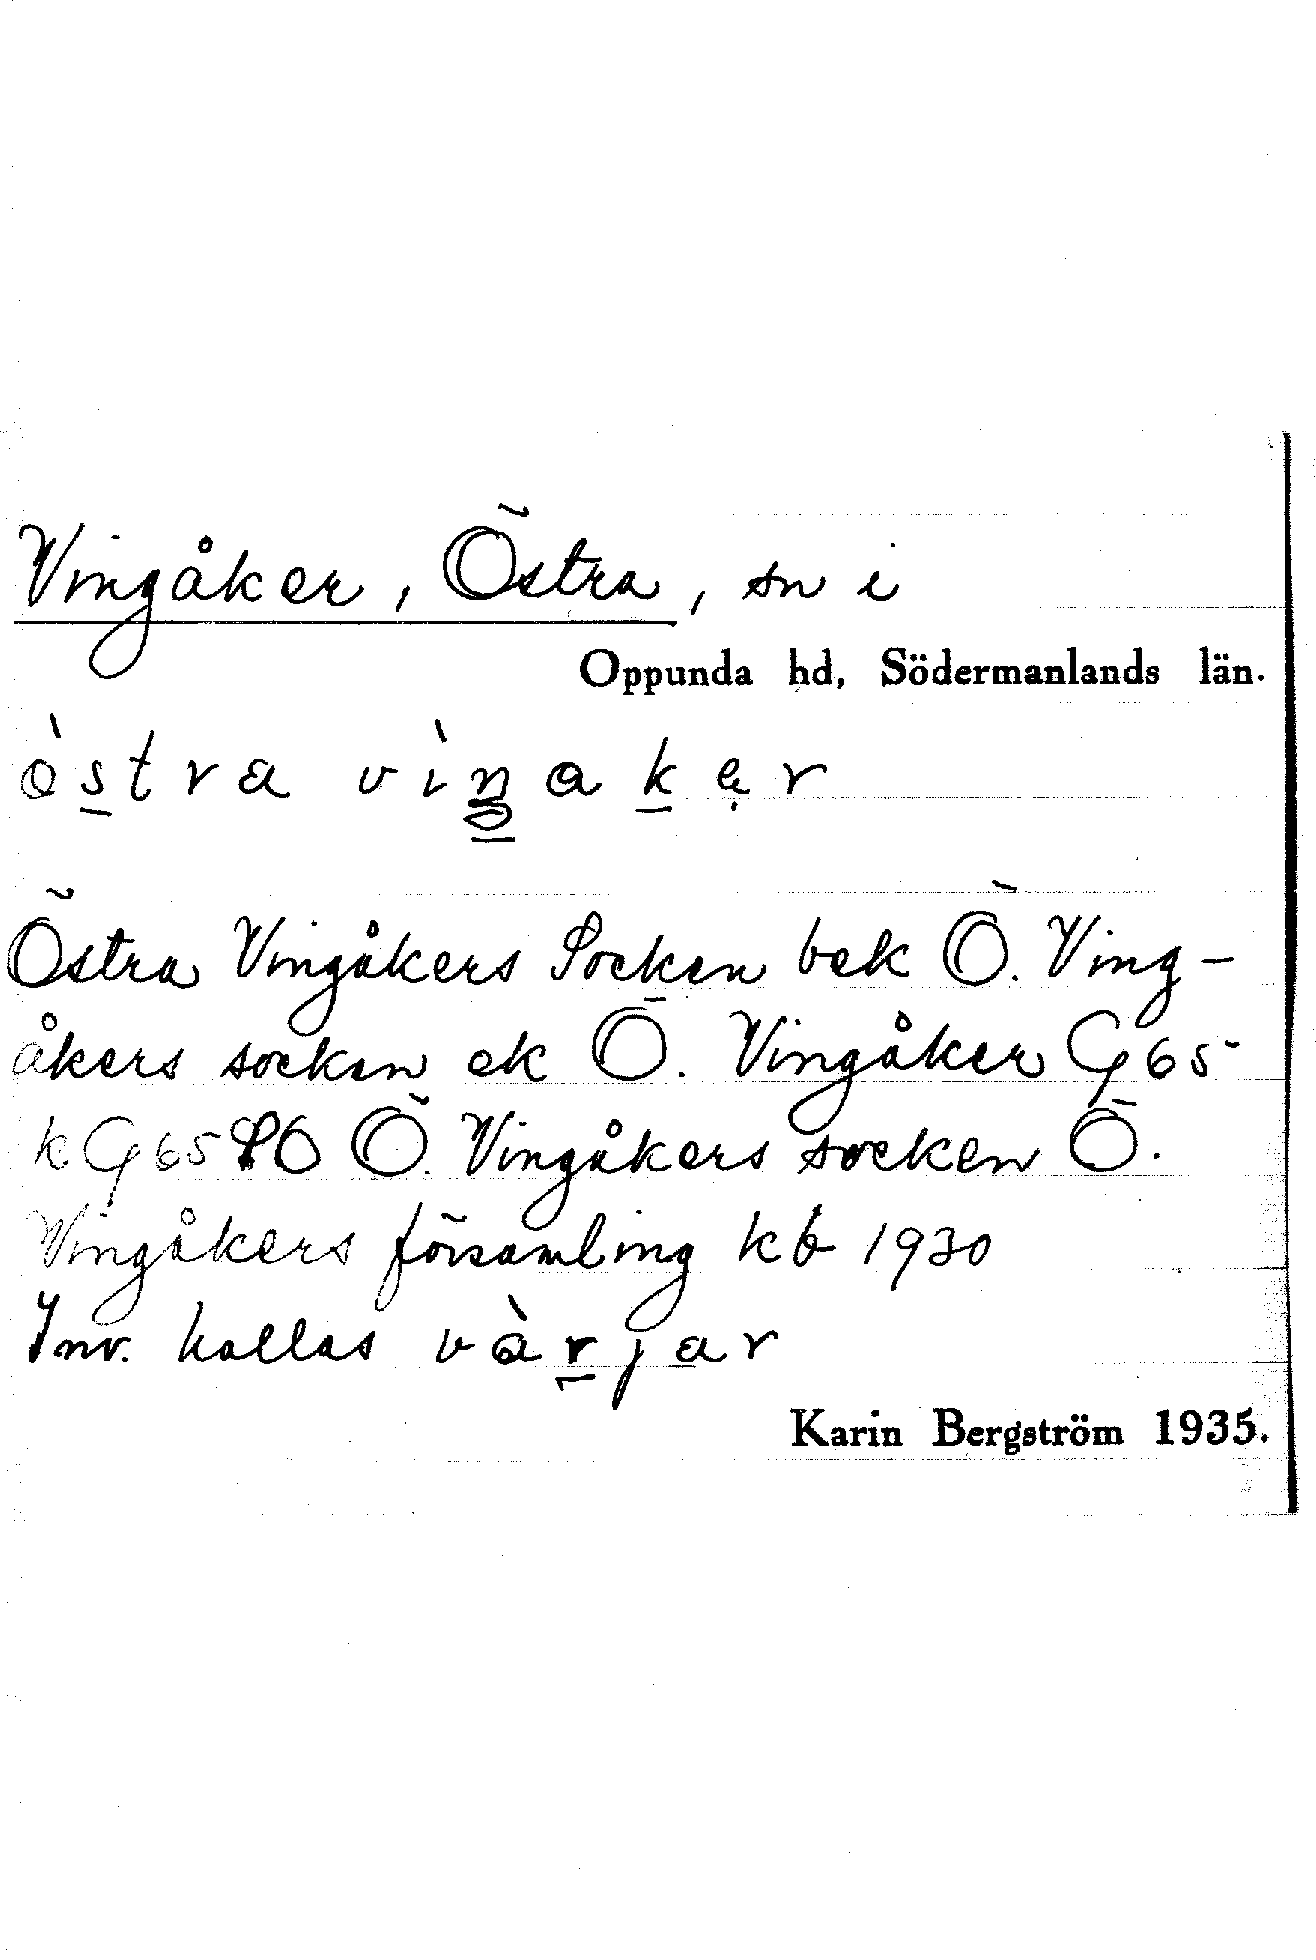 Vingåker, Östra, sn i
Oppunda hd, Södermanlands län.
östra viŋakər
Östra Vingåkers Socken bek Ö. Ving-
åkers socken ek Ö. Vingåker G 65
k G 65 SO Ö. Vingåkers socken Ö.
Vingåkers församling kb 1930
Inv. kallas vàrjar
Karin Bergström 1935.